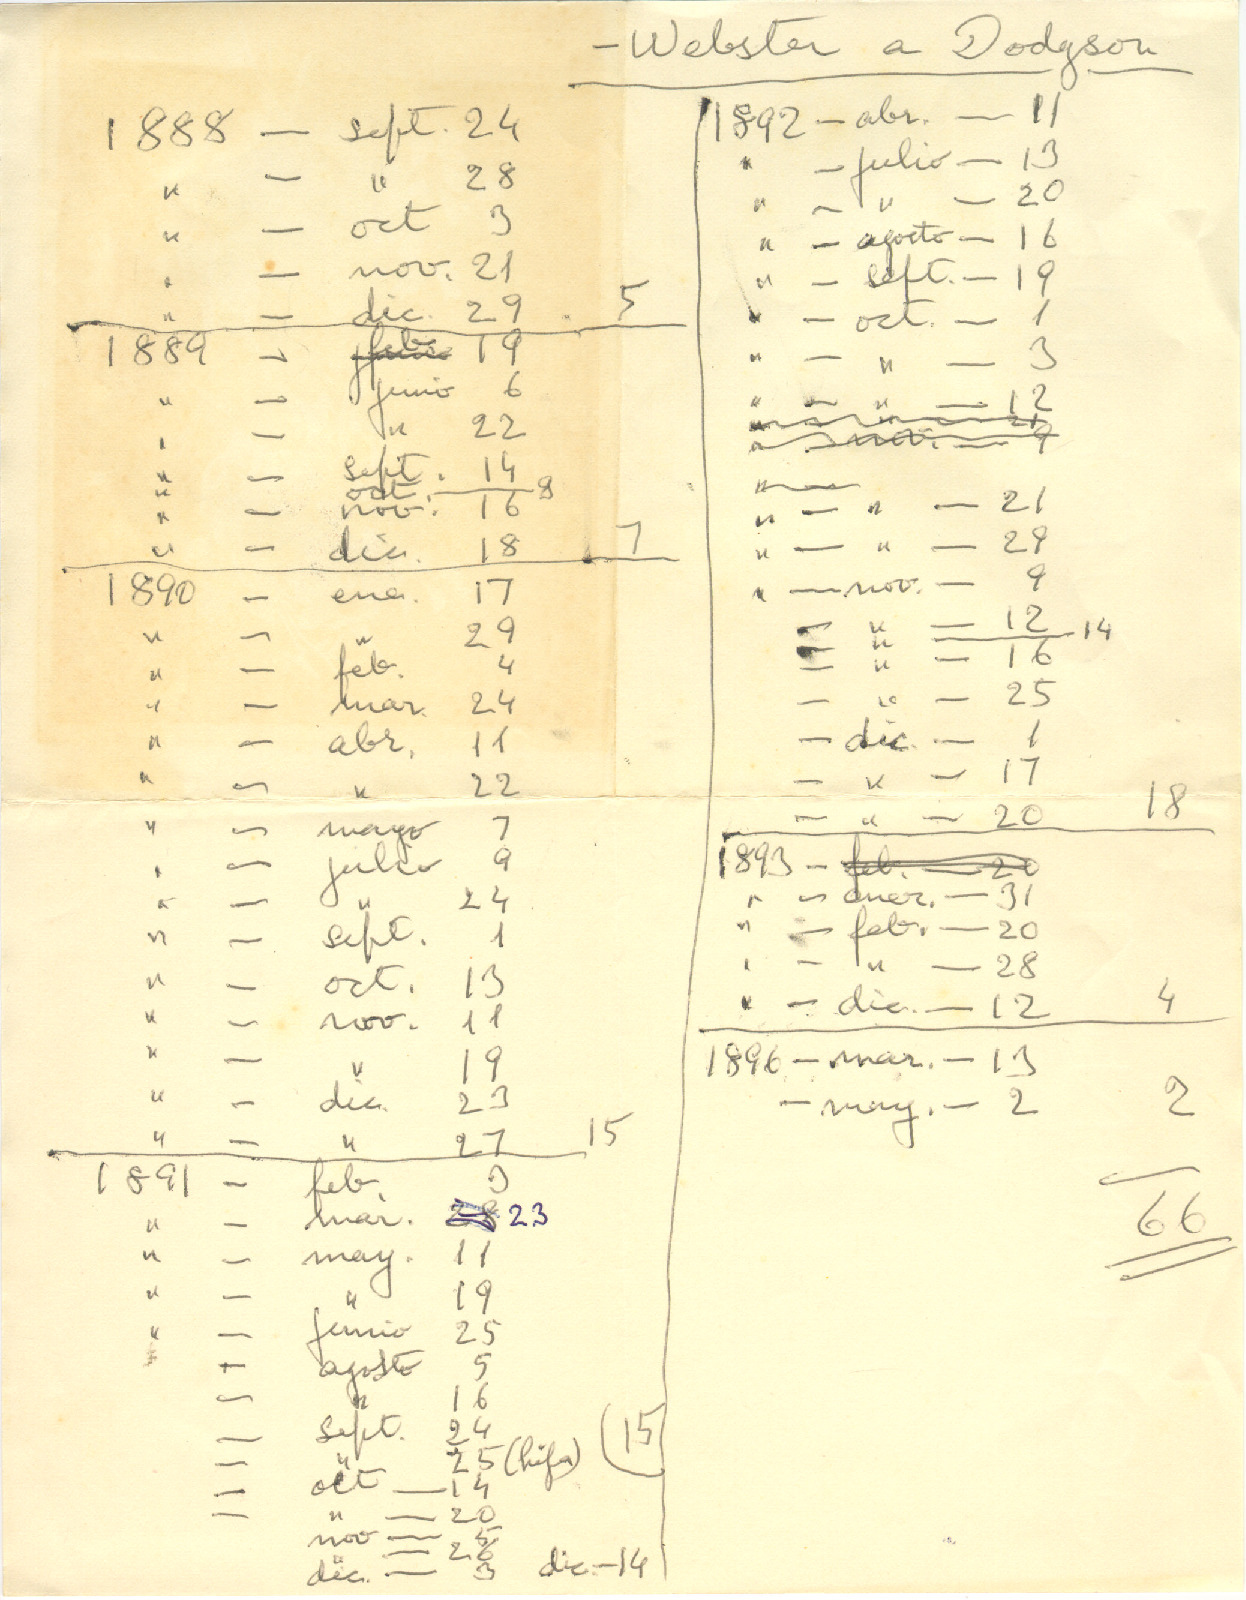 - Webster a Dodgson
1888 — sept. 24
" — " 28
" — oct 3
" — nov. 21
" — dic. 29 5
1889 - feb. 19
" — junio 6
" — " 22
" — sept. 14
" oct. — 8
" — nov. 16
" — dic. 18 7
1890 - ene. 17
" — " 29
" — feb. 4
" — mar. 24
" — abr. 11
" — " 22
" — mayo 7
" — julio 9
" — " 24
" — sept. 1
" — oct. 13
" — nov. 11
" — " 19
" — dic. 23
" — " 27 15
1891 - feb. 3
" — mar. 23
" — may. 11
" — " 19
" — junio 25
" — agosto 5
— " 16
— sept. 24
— " 25 (hija) (15
— oct — 14
— " — 20
nov — 5
" — 26
dic. — 3 dic - 14
1892 - abr. — 11
" - julio — 13
" - " — 20
" - agosto — 16
" - sept. — 19
" - oct. — 1
" — " — 3
" - " — 12
" 21
" - nov. — 9
" —
" — " — 21
" — " — 29
" — nov. — 9
— " — 12
" — 14
— " — 16
— " — 25
— dic. — 1
— " — 17
— " — 20 18
1893 - feb. — 20
" - ener. — 31
" - feb. — 20
" - " — 28
" - dic. — 12 4
1896 - mar. - 13
- may. - 2 2
66